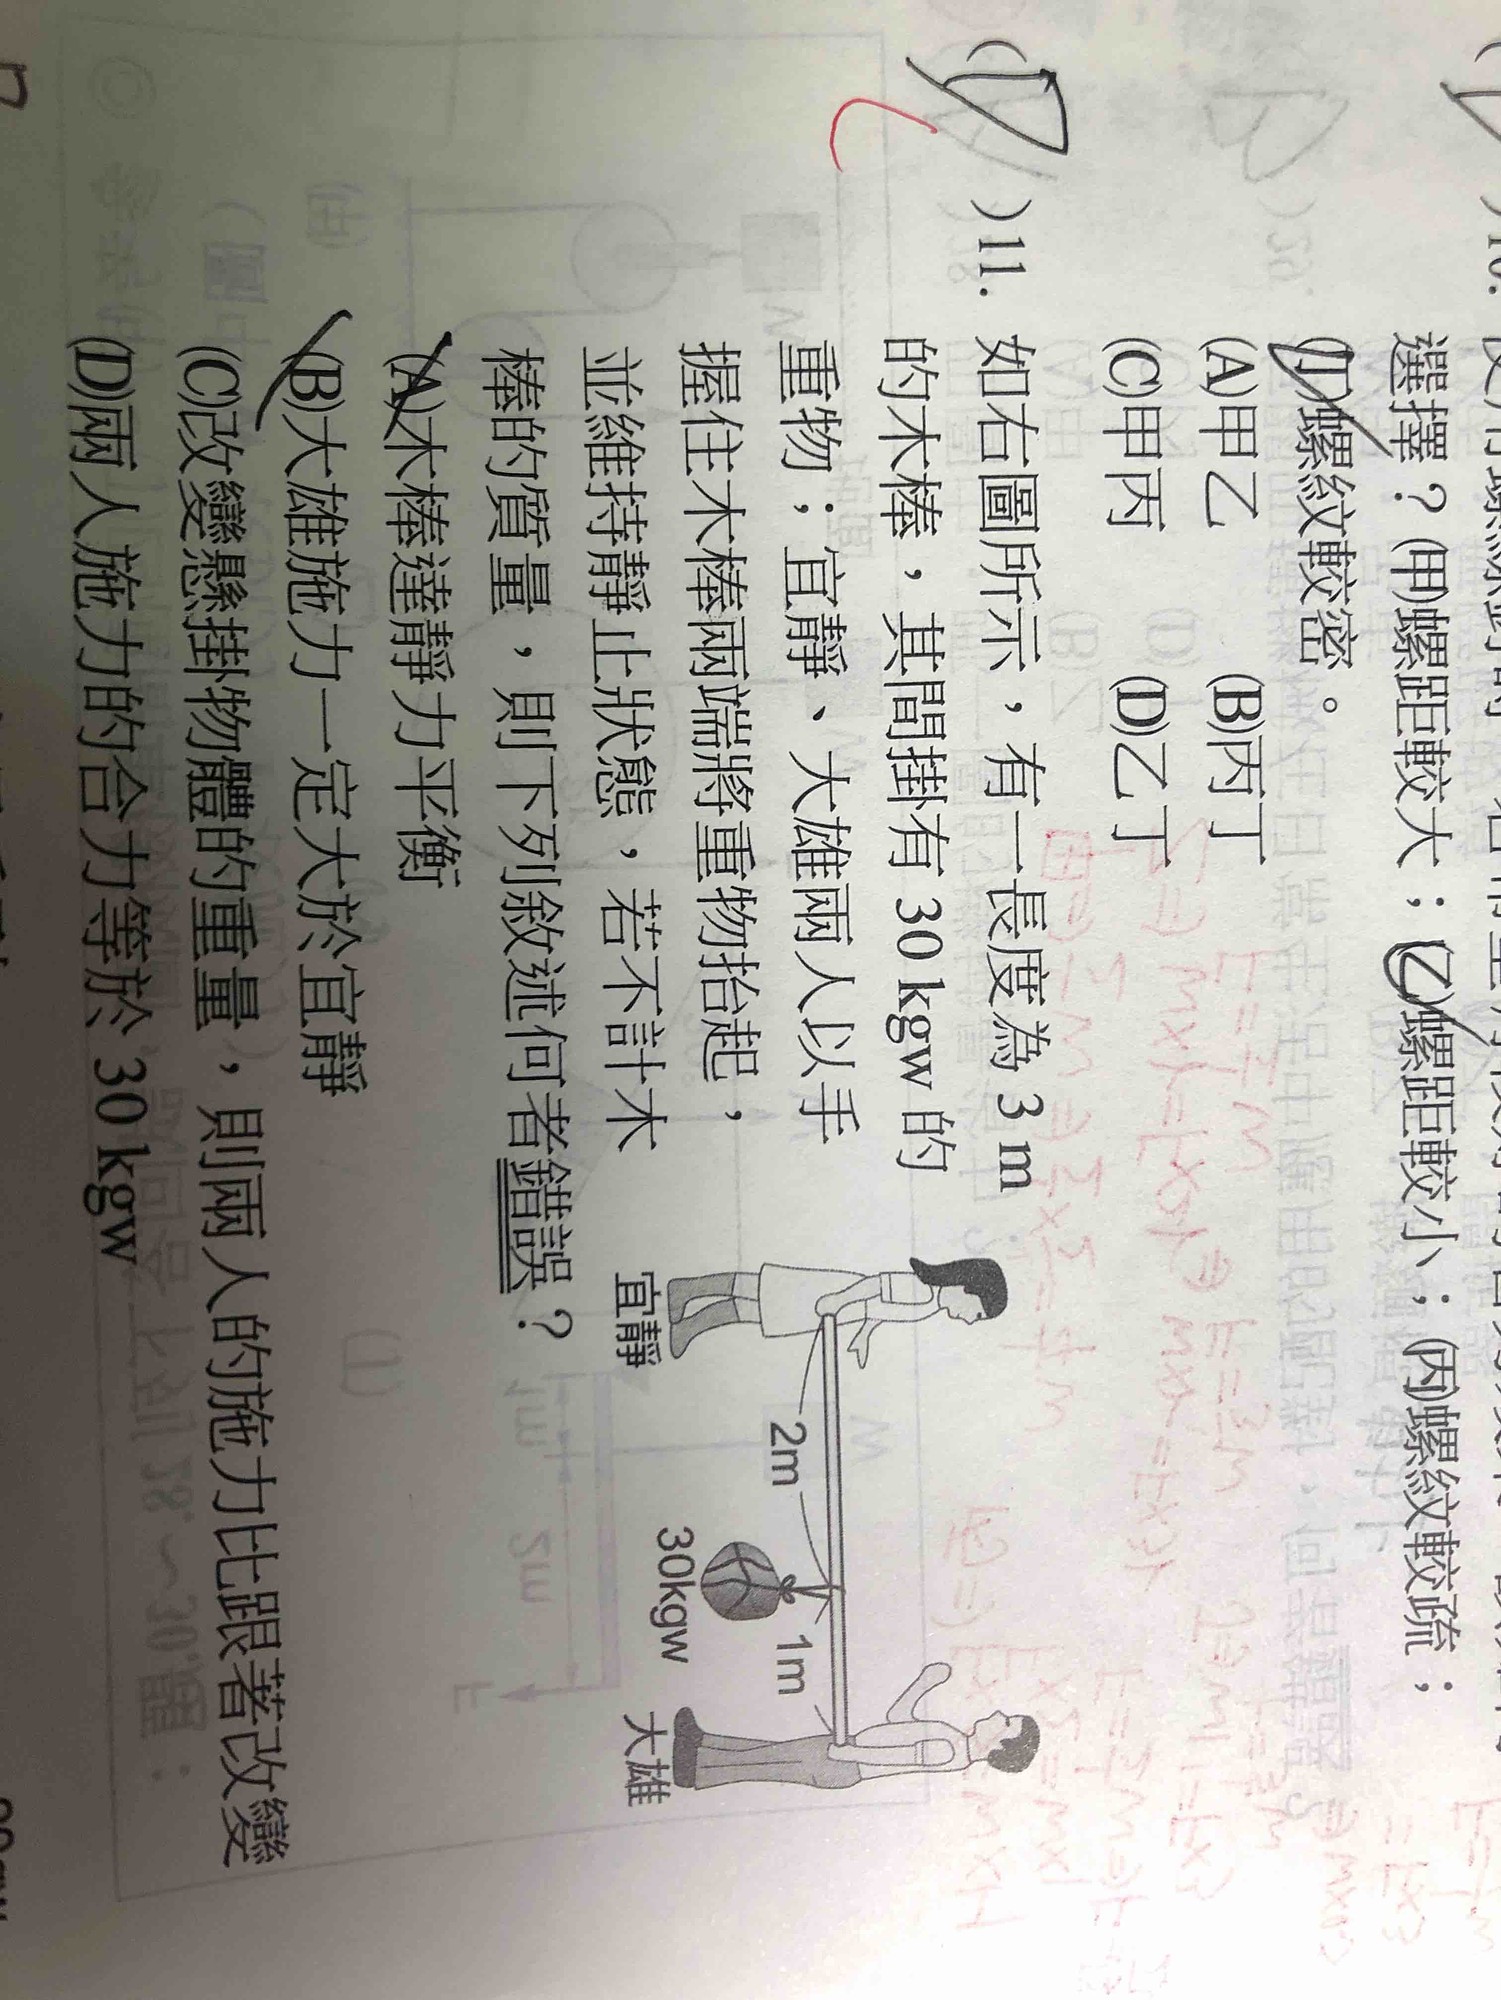 選擇？(甲)螺距較大；(乙)螺距較小；(丙)螺紋較疏；
(丁)螺紋較密。
(A)甲乙 (B)丙丁
(C)甲丙 (D)乙丁
( D )11. 如右圖所示，有一長度為 3 m
的木棒，其間掛有 30 kgw 的
重物；宜靜、大雄兩人以手
握住木棒兩端將重物抬起，
並維持靜止狀態，若不計木
棒的質量，則下列敘述何者錯誤？
(A)木棒達靜力平衡
(B)大雄施力一定大於宜靜
(C)改變懸掛物體的重量，則兩人的施力比跟著改變
(D)兩人施力的合力等於 30 kgw
2m
1m
30kgw
宜靜
大雄